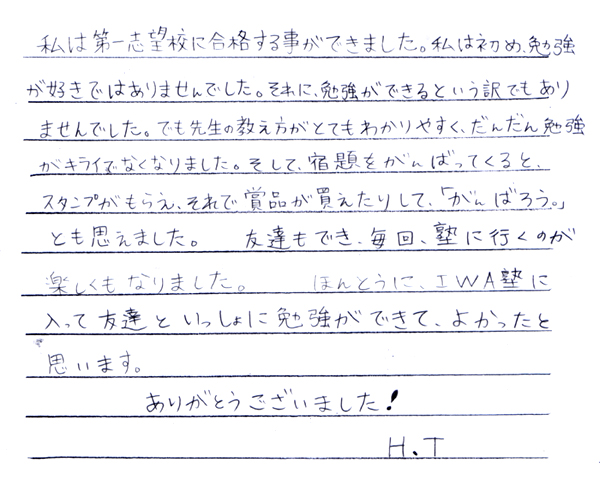 私は第一志望校に合格する事ができました。私は初め、勉強
が好きではありませんでした。それに、勉強ができるという訳でもあり
ませんでした。でも先生の教え方がとてもわかりやすく、だんだん勉強
がキライでなくなりました。そして、宿題をがんばってくると、
スタンプがもらえ、それで賞品が買えたりして、「がんばろう。」
とも思えました。 友達もでき、毎回、塾に行くのが
楽しくもなりました。 ほんとうに、IWA塾に
入って友達といっしょに勉強ができて、よかったと
思います。
ありがとうございました!
H.T